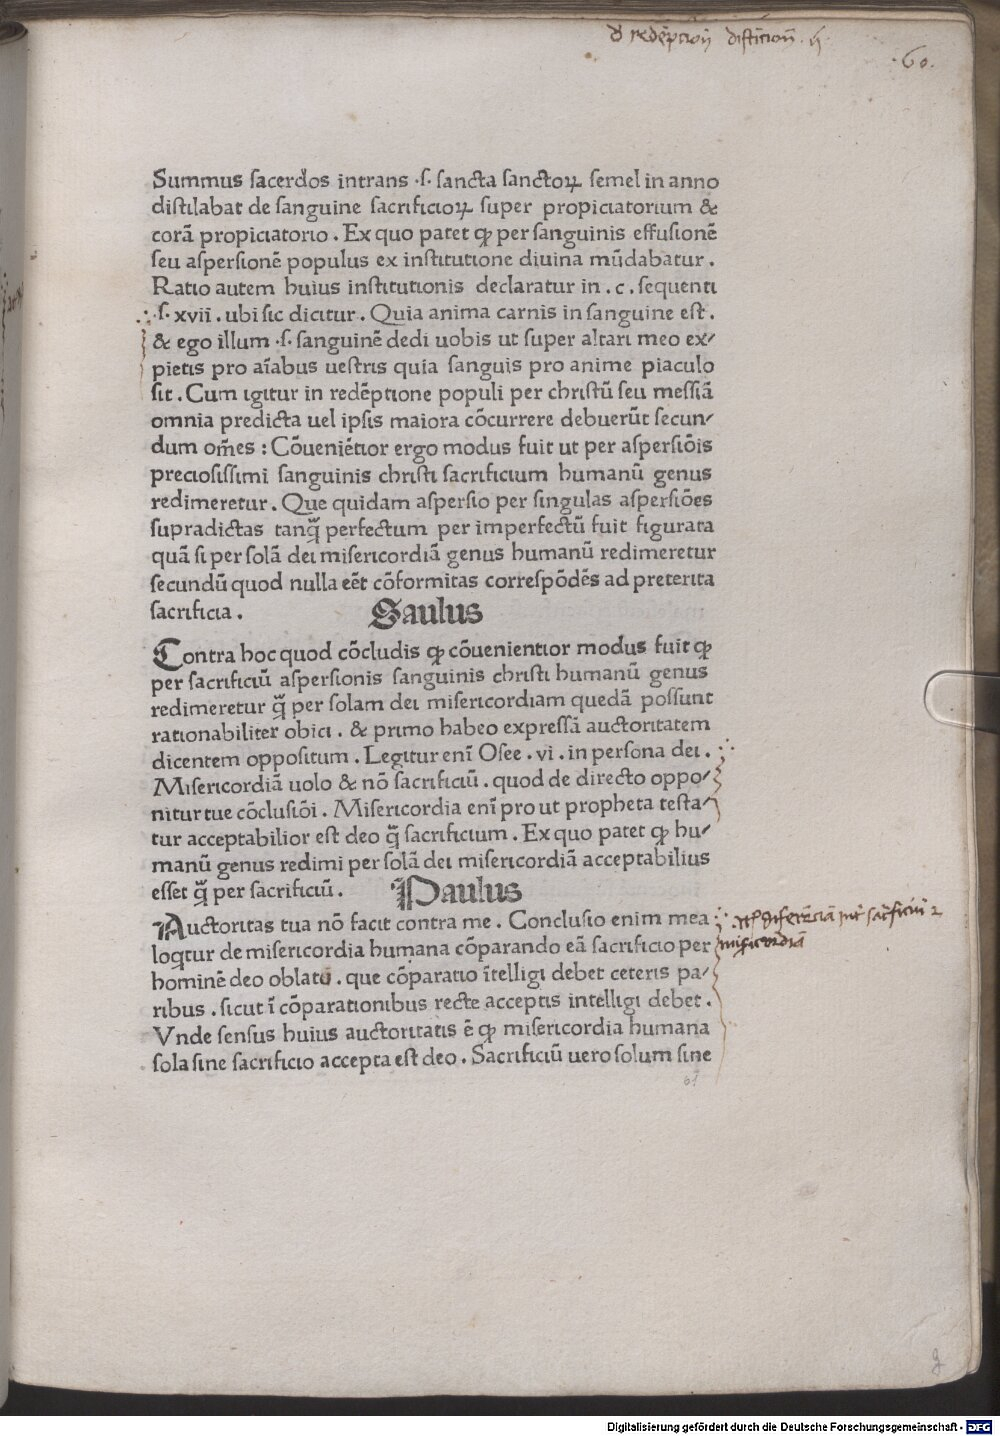 d̕ redẽpcioñ distinciõñ . ij
.60.
Summus ſacerdos intrans .ſ. ſancta ſanctoꝝ ſemel in anno
diſtilabat de ſanguine ſacrificioꝝ ſuper propiciatorium &
corã propiciatorio . Ex quo patet ꝙ per ſanguinis effuſionẽ
ſeu aſperſionẽ populus ex inſtitutione diuina mũdabatur .
Ratio autem huius inſtitutionis declaratur in . c . ſequenti
.ſ. xvii . ubi ſic dicitur . Quia anima carnis in ſanguine eſt .
& ego illum .ſ. ſanguinẽ dedi uobis ut ſuper altari meo ex⸗
pietis pro aĩabus ueſtris quia ſanguis pro anime piaculo
ſit . Cum igitur in redẽptione populi per chriſtũ ſeu meſſiã
omnia predicta uel ipſis maiora cõcurrere debuerũt ſecun⸗
dum om̃es : Cõueniẽtior ergo modus fuit ut per aſperſiõis
precioſiſſimi ſanguinis chriſti ſacrificium humanũ genus
redimeretur . Que quidam aſperſio per ſingulas aſperſiões
ſupradictas tanq̃ perfectum per imperfectũ fuit figurata
quã ſi per ſolã dei miſericordiã genus humanũ redimeretur
ſecundũ quod nulla eẽt cõformitas correſpõdẽs ad preterita
ſacrificia .
Saulus
Contra hoc quod cõcludis ꝙ cõuenientior modus fuit ꝙ
per ſacrificiũ aſperſionis ſanguinis chriſti humanũ genus
redimeretur q̃ per ſolam dei miſericordiam quedã poſſunt
rationabiliter obici . & primo habeo expreſſã auctoritatem
dicentem oppoſitum . Legitur enĩ Oſee . vi . in perſona dei .
Miſericordiã uolo & nõ ſacrificiũ . quod de directo oppo⸗
nitur tue cõcluſiõi . Miſericordia enĩ pro ut propheta teſta⸗
tur acceptabilior eſt deo q̃ ſacrificium . Ex quo patet ꝙ hu⸗
manũ genus redimi per ſolã dei miſericordiã acceptabilius
eſſet q̃ per ſacrificiũ .
Paulus
Auctoritas tua nõ facit contra me . Concluſio enim mea
loqͥtur de miſericordia humana cõparando eã ſacrificio per
hominẽ deo oblatũ . que cõparatio ĩtelligi debet ceteris pa⸗
ribus . ſicut ĩ cõparationibus recte acceptis intelligi debet .
Vnde ſenſus huius auctoritatis ẽ ꝙ miſericordia humana
ſola ſine ſacrificio accepta eſt deo . Sacrificiũ uero ſolum ſine
diferẽciã int̕ sacrificiũ ⁊
miſericordiã
61
g
Digitalisierung gefördert durch die Deutsche Forschungsgemeinschaft - DFG